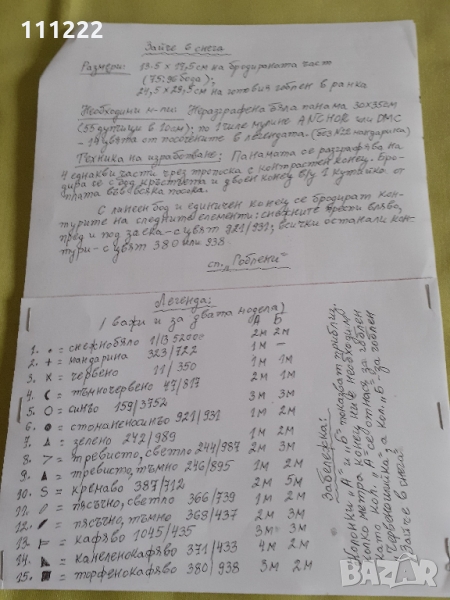 111222
Зайче в снега
Размери: 13.5 х 17,5см на бродираната част
(75;96 бода);
24,5 х 28,5см на готовия гоблен в рамка
Необходими м-ли: Неразграфена бяла панама 30х35см
(55 дупчици в 10см); по 1 чиле мулине ANCHOR или DMC
- 14 цвята от посочените в легендата. (без №2 мандарина)
Техника на изработване: Панамата се разграфява на
4 еднакви части чрез тропоска с контрастен конец. Бро-
дира се с бод кръстчета и двоен конец в/у 1 кутийка от
плата във всяка посока.
С ланеен бод и единичен конец се бродират кон-
турите на следните елементи: снежните преспи вляво,
пред и под заека - с цвят 921/931; всички останали кон-
тури - с цвят 380 или 938.
сп. „Гоблени“
Легенда:
/важи и за двата модела) А Б
1. • = снежнобяло 1/B5200 2м 2м
2. + = мандарина 323/722 1м -
3. x = червено 11/350 1м 1м
4. = тъмночервено 47/817 1м 1м
5. O = синьо 159/3752 3м 3м
6. = стоманеносиньо 921/931 1м 2м
7. = зелено 242/989 1м 2м
8. > = тревисто, светло 244/987 2м 3м
9. ▲ = тревисто, тъмно 246/895 1м 2м
10. S = кремаво 387/712 2м 5м
11. = пясъчно, светло 366/739 1м 2м
12. = пясъчно, тъмно 368/437 2м 3м
13. = кафяво 1045/435 3м 3м
14. = канеленокафяво 371/433 4м 2м
15. = торфенокафяво 380/938 3м 2м
Забележка:
Колонки „А“ и „Б“ показват приблиз.
колко метра конец ще е необходимо
като кол. „А“ се отнася за гоблен
Червеношийка, а кол. „Б“ - за гоблен
Зайче в снега.
bazar.bg